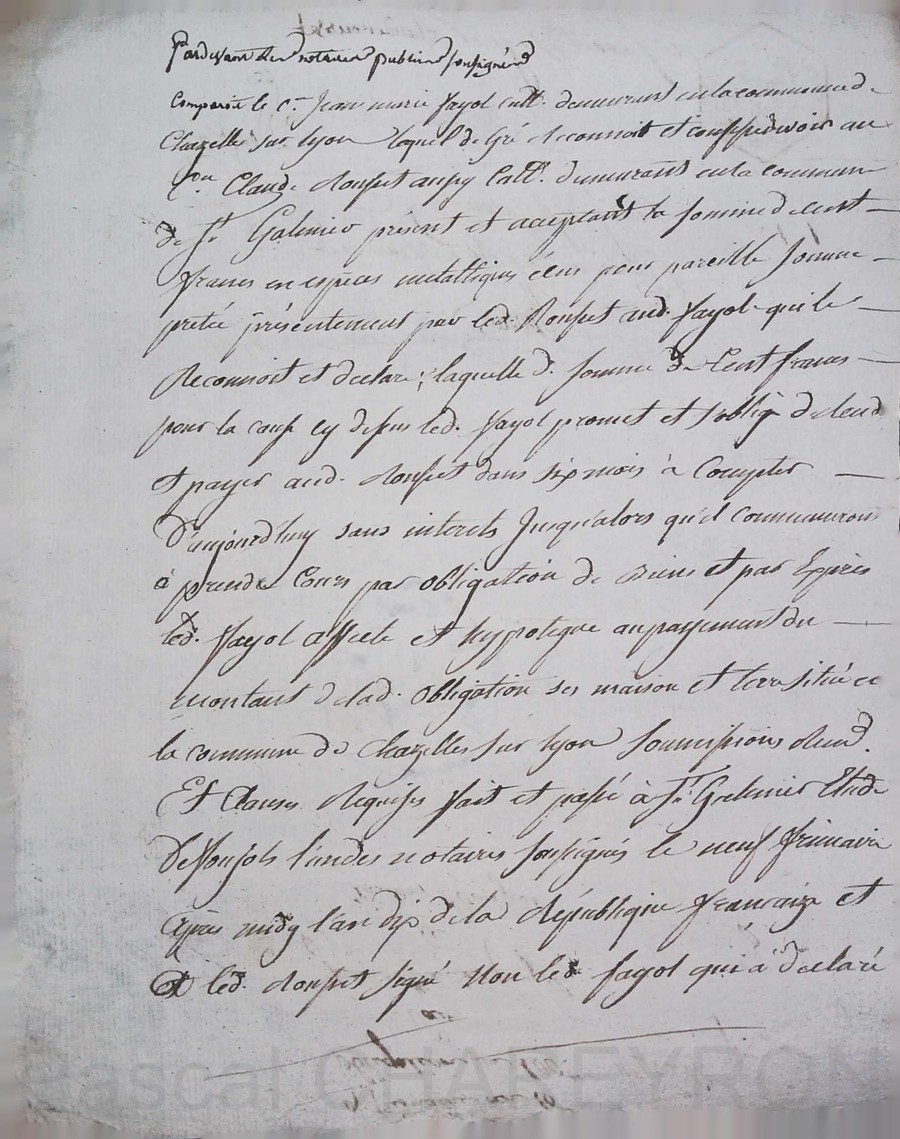 Pardevant les notaires publics soussignés
Comparoit le c.en Jean marie fayol cult. demeurant en la commune de
Chazelles sur lyon lequel de Gré Reconnoit et confesse devoir au
c.en Claude Rousset aussy Cult. demeurant en la commune
de St. Galmier présent et acceptant la somme de cent
francs en especes metalliques pour pareille somme
pretée présentement par led. Rousset aud. fayol qui le
Reconnoit et declare ; laquelle d. somme de Cent francs
pour la cause cy dessus led. fayol promet et s'oblige de rend
et payer aud. Rousset dans six mois à Compter
D'aujourd'huy sans interets Jusqu'alors qu'il commenceront
à prendre Cours par obligation de Biens et par Exprès
led. fayol affecte et hypoteque au payement du
montant de lad. obligation ses maison et terre située
la commune de chazelles sur lyon soumissions Rend.
Et Clauses Requises fait et passé à St. Galmier Etude
l'un des notaires soussignés le neuf frimaire
Après midy l'an dix de la République française et
Et led. Rousset signé Non led. fayol qui a declaré
Pascal CHAREYRON